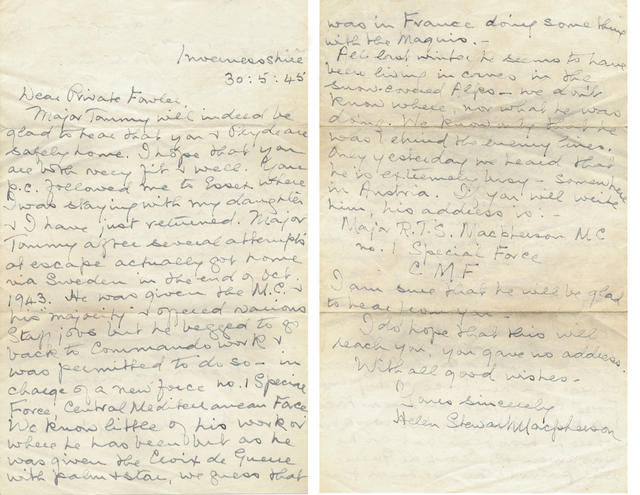 Invernessshire
30:5:45
Dear Private Fowler,
Major Tommy will indeed be
glad to hear that you & Plyde are
safely home. I hope that you
are both very fit & well. Your
p.c. followed me to Essex where
I was staying with my daughter
& I have just returned. Major
Tommy after several attempts
at escape actually got home
via Sweden in the end of Oct.
1943. He was given the M.C. &
his majority & offered various
Staff jobs but he begged to go
back to Commando work &
was permitted to do so – in
charge of a new force no. 1 Special
Force, Central Mediterranean Force
We know little of his work or
where he has been but as he
was given the Croix de Guerre
with palm & star, we guess that
was in France doing something
with the Maquis. –
All last winter he seems to have
been living in caves in the
snow-covered Alps – we don't
know where, nor what he was
doing. We know only that he
was behind the enemy lines.
Only yesterday we heard that
he is extremely busy – somewhere
in Austria. If you will write
him, his address is. –
Major R.T.S. Macpherson M.C
no. 1 Special Force
C.M.F.
I am sure that he will be glad
to hear from you –
I do hope that this will
reach you, you gave no address.
With all good wishes –
Yours sincerely
Helen Stewart Macpherson